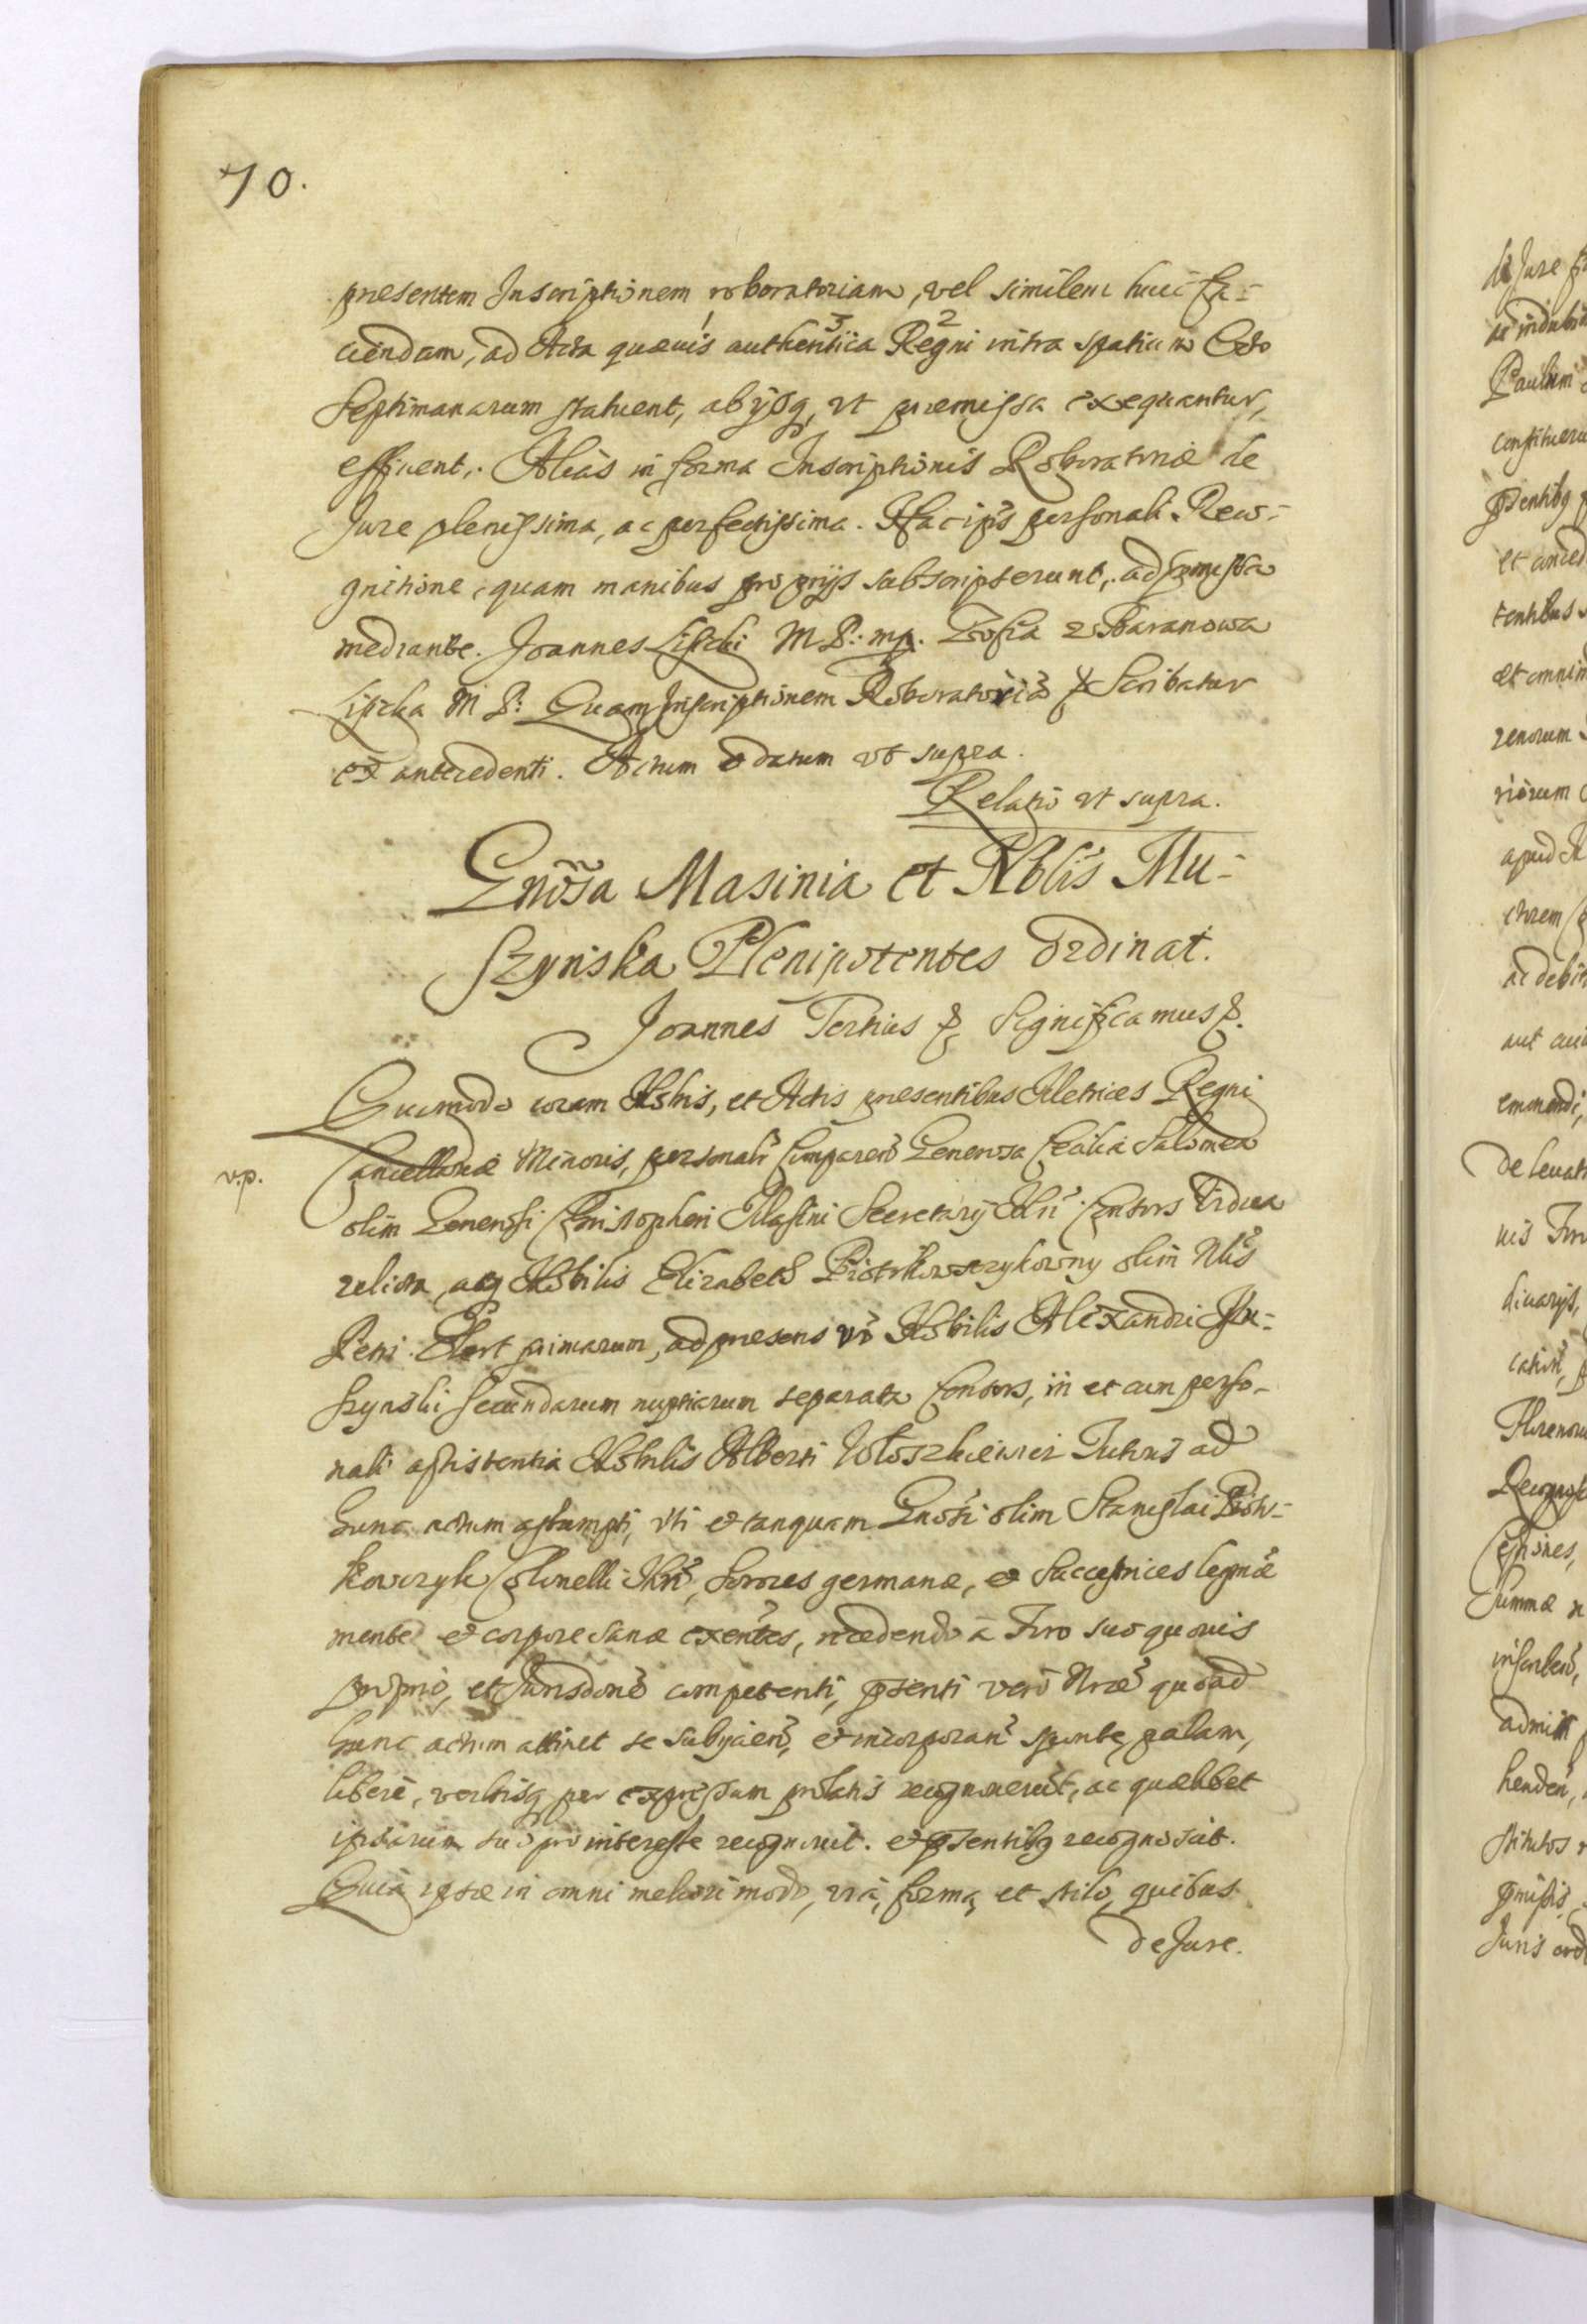 70.
presentem Inscriptionem roboratoriam, vel similem huic fa=
ciendam, ad Acta quævis authentica Regni intra spatium Octo
Septimanarum statuent, ab ijsq, vt præmissa exequantur,
efficient. Alias in forma Inscriptionis Roboratoriæ de
Jure plenissima, ac perfectissima. personali Reco=
gnitione, quam manibus proprijs subscripserunt, ad præmissa
mediante. Joannes Lisicki M P: mp. Zofia z Baranowa
Lisicka M P: Quam Inscriptionem Scribatur
ex antecedenti. Actum & datum vt supra.
Relatio vt supra.
Gnosa Masinia et Nblis Mu=
szynska Plenipotentes Ordinat.
Joannes Tertius Significamus
Quomodo coram Nobis, et Actis presentibus Metrices Regni
v.p.
Cancellariæ Minoris, personalr Comparen Generosa Cecilia Salomea
olim Generosi Christopheri Masini Secretarij Nri Consors Vidua
relicta, atq Nobilis Elizabeth Piotrkowczykowny olim Nlis
Petri primarum, ad presens vo Nobilis Alexandri Mu=
szynski Secundarum nuptiarum separata Consors, in et cum perso-
nali assistentia Nobilis Alberti Wołoszkiewicz Tutoris ad
hunc actum assumpti, vti & tanquam Gnosi olim Stanislai Piotr=
kowczyk Colonelli Nri, Sorores germanæ, & Successrices legmæ
mente & corpore sanæ exentes, recedendo a Foro suo quovis
proprio, et Jurisdone competenti, psenti vero Nræ quoad
hunc actum attinet se subijcien, & incorporan sponte, palam,
libere, verbisq per expressum prolatis recognoverunt, ac quælibet
ipsarum suo pro interesse recognovit. & psentibq recognoscit.
Quia ipsæ in omni meliori modo, via, forma, et stilo, quibus
de Jure.